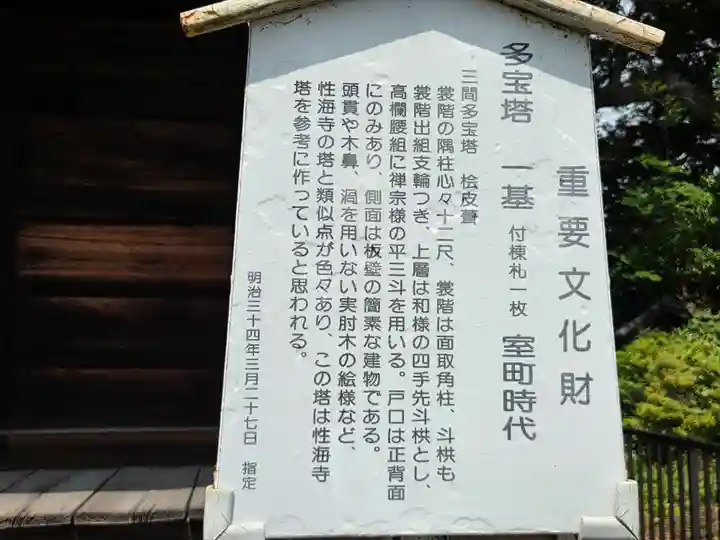 重要文化財
多宝塔 一基 付棟札一枚 室町時代
三間多宝塔 桧皮葺
裳階の隅柱心々十二尺、裳階は面取角柱、斗栱も
裳階出組支輪つき、上層は和様の四手先斗栱とし、
高欄腰組に禅宗様の平三斗を用いる。戸口は正背面
にのみあり、側面は板壁の簡素な建物である。
頭貫や木鼻、渦を用いない実肘木の絵様など、
性海寺の塔と類似点が色々あり、この塔は性海寺
塔を参考に作っていると思われる。
明治三十四年三月二十七日 指定